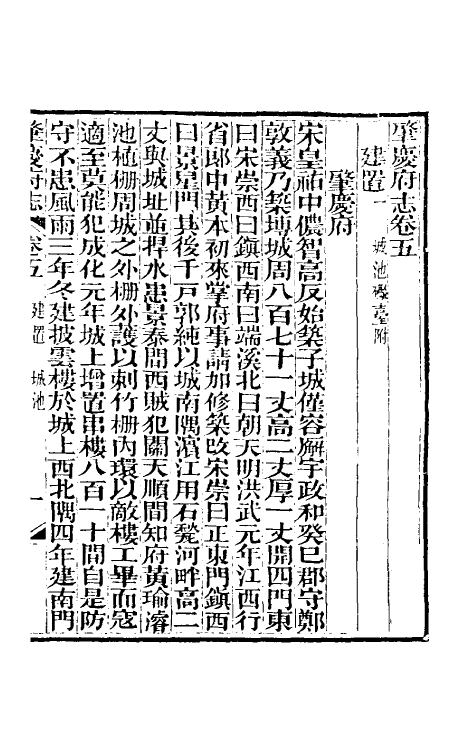 肇慶府志卷五
建置一 城池礮臺附
肇慶府
宋皇祐中儂智高反始築子城僅容廨宇政和癸巳郡守鄭
敦義乃築塼城周八百七十一丈高二丈厚一丈開四門東
曰宋崇西曰鎮西南曰端溪北曰朝天明洪武元年江西行
省郎中黃本初來掌府事請加修築改宋崇曰正東門鎮西
曰景星門其後千戶郭純以城南隅濱江用石甃河畔高二
丈與城址並捍水患景泰間西賊犯關天順間知府黃瑜濬
池植柵周城之外柵外護以刺竹柵內環以敵樓工畢而寇
適至莫能犯成化元年城上增置串樓八百一十間自是防
守不患風雨三年冬建披雲樓於城上西北隅四年建南門
肇慶府志 卷五 建置 城池 一